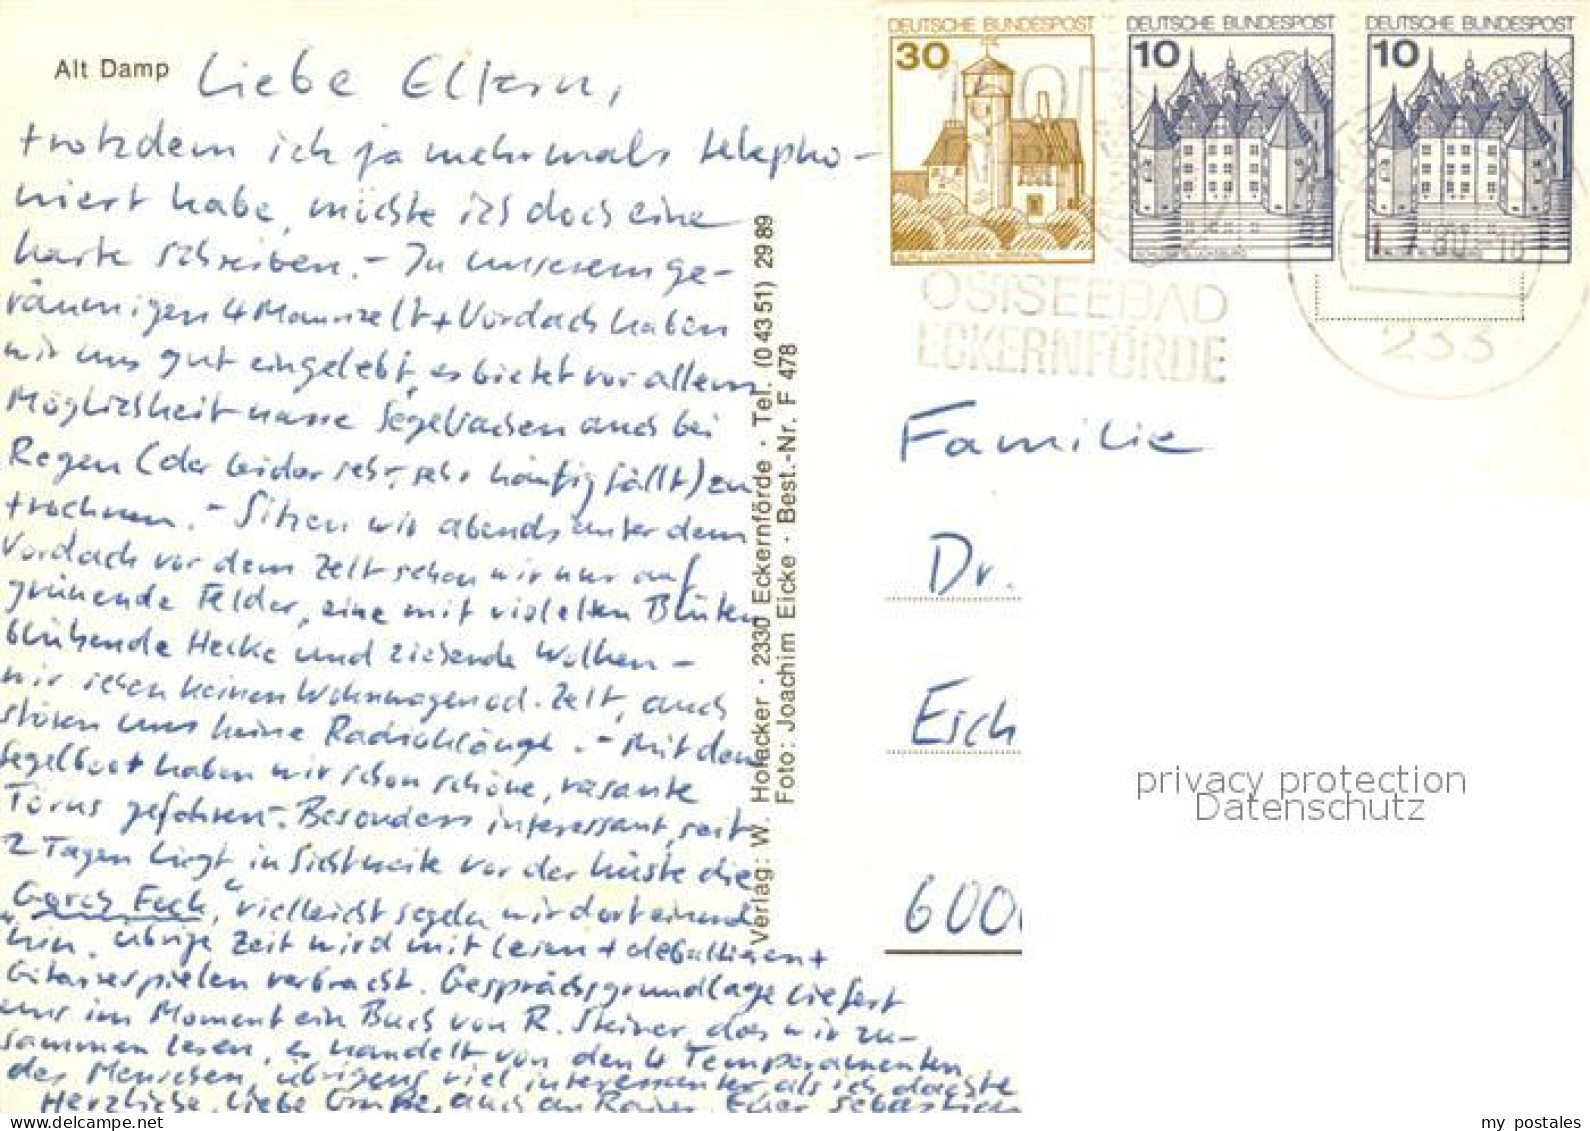 Alt Damp
Liebe Eltern,
trotzdem ich ja mehrmals telepho-
niert habe, möchte ich doch eine
Karte schreiben. - In unserem ge-
räumigen 4 Mannzelt + Vordach haben
wir uns gut eingelebt, es bietet vor allem
Möglichkeit nasse Segelsachen auch bei
Regen (der leider sehr, sehr häufig fällt) zu
trocknen. - Sitzen wir abends unter dem
Vordach vor dem Zelt sehen wir nur auf
grünende Felder, eine mit violetten Blüten
blühende Hecke und ziehende Wolken -
wir sehen keinen Wohnwagen od. Zelt, auch
stören uns keine Radioklänge. - Mit dem
Segelboot haben wir schon schöne, rasante
Törns gefahren. Besonders interessant, seit
2 Tagen liegt in Sichtweite vor der Küste die
„Gorch Fock“, vielleicht segeln wir dort einmal
hin. Übrige Zeit wird mit lesen + debattieren +
Gitarrespielen verbracht. Gesprächsgrundlage liefert
uns im Moment ein Buch von R. Steiner, das wir zu-
sammen lesen, es handelt von den 4 Temperamenten
des Menschen, übrigens viel interessanter als ich dachte
Herzliche, liebe Grüße, auch an Rainer, Euer Sebastian
Verlag: W. Hofacker · 2330 Eckernförde · Tel. (0 43 51) 29 89
Foto: Joachim Eicke · Best.-Nr. F 478
DEUTSCHE BUNDESPOST
30
DEUTSCHE BUNDESPOST
10
DEUTSCHE BUNDESPOST
10
1.7.80-18
OSTSEEBAD
ECKERNFÖRDE
233
Familie
Dr.
Esch
600
privacy protection
Datenschutz
delcampe.net
my_postales